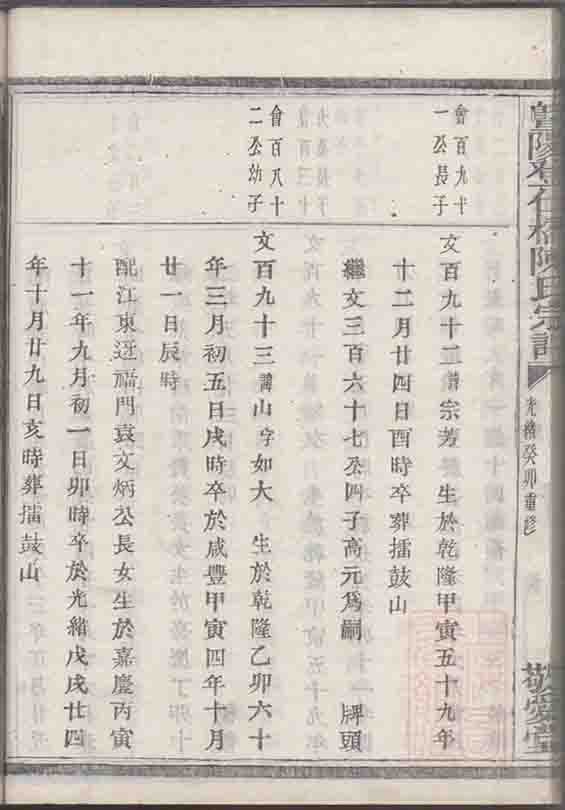 暨陽石橋陳氏宗譜
光緒癸卯重修
敬愛堂
會百九十
一公長子
文百九十二諱宗 生於乾隆甲寅五十九年
十二月廿四日酉時卒葬擂鼓山
繼文三百六十七公四子高元爲嗣 牌頭
會百八十
二公幼子
文百九十三諱山字如大 生於乾隆乙卯六十
年三月初五日戌時卒於咸豐甲寅四年十月
廿一日辰時
配江東迓福門袁文炳公長女生於嘉慶丙寅
十一年九月初一日卯時卒於光緒戊戌廿四
年十月廿九日亥時葬擂鼓山